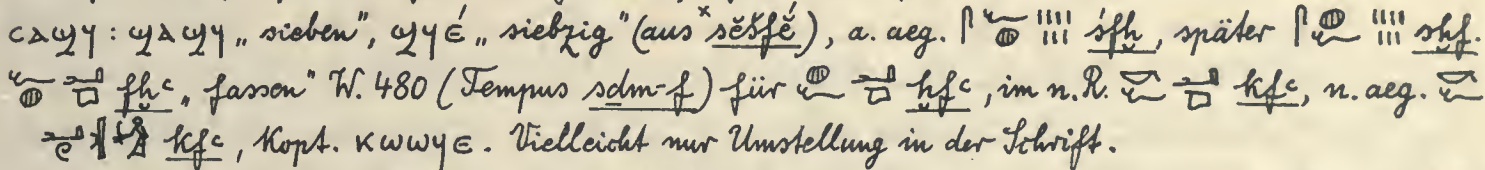 ⲥⲁϣϥ : ϣⲁϣϥ „sieben“, ϣϥⲉ́ „siebzig“ (aus ˣsĕšfĕ́), a. aeg. 𓋴𓆑𓐍 śfḫ, später 𓋴𓐍𓆑 sḫf.
𓆑𓐍 fḫꜥ „fassen“ W. 480 (Tempus sdm-f) für 𓐍𓆑 ḫfꜥ, im n. R. 𓎡𓆑 kfꜥ, n. aeg. 𓎡𓆑
kfꜥ, Kopt. ⲕⲱⲱϥⲉ. Vielleicht nur Umstellung in der Schrift.